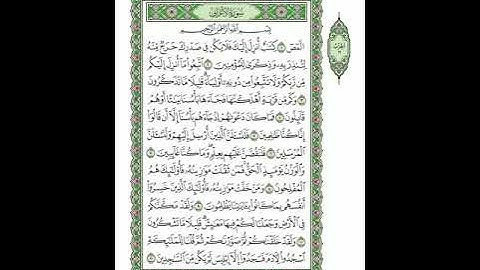 سُورَةُ الأَعْرَافِ
بِسْمِ اللَّهِ الرَّحْمَٰنِ الرَّحِيمِ
الٓمٓصٓ ١ كِتَٰبٌ أُنزِلَ إِلَيْكَ فَلَا يَكُن فِي صَدْرِكَ حَرَجٌ مِّنْهُ
لِتُنذِرَ بِهِۦ وَذِكْرَىٰ لِلْمُؤْمِنِينَ ٢ ٱتَّبِعُوا۟ مَآ أُنزِلَ إِلَيْكُم
مِّن رَّبِّكُمْ وَلَا تَتَّبِعُوا۟ مِن دُونِهِۦٓ أَوْلِيَآءَ قَلِيلًا مَّا تَذَكَّرُونَ
٣ وَكَم مِّن قَرْيَةٍ أَهْلَكْنَٰهَا فَجَآءَهَا بَأْسُنَا بَيَٰتًا أَوْ هُمْ
قَآئِلُونَ ٤ فَمَا كَانَ دَعْوَىٰهُمْ إِذْ جَآءَهُم بَأْسُنَآ إِلَّآ أَن قَالُوٓا۟
إِنَّا كُنَّا ظَٰلِمِينَ ٥ فَلَنَسْـَٔلَنَّ ٱلَّذِينَ أُرْسِلَ إِلَيْهِمْ وَلَنَسْـَٔلَنَّ
ٱلْمُرْسَلِينَ ٦ فَلَنَقُصَّنَّ عَلَيْهِم بِعِلْمٍ وَمَا كُنَّا غَآئِبِينَ ٧
وَٱلْوَزْنُ يَوْمَئِذٍ ٱلْحَقُّ فَمَن ثَقُلَتْ مَوَٰزِينُهُۥ فَأُو۟لَٰٓئِكَ هُمُ
ٱلْمُفْلِحُونَ ٨ وَمَنْ خَفَّتْ مَوَٰزِينُهُۥ فَأُو۟لَٰٓئِكَ ٱلَّذِينَ خَسِرُوٓا۟
أَنفُسَهُم بِمَا كَانُوا۟ بِـَٔايَٰتِنَا يَظْلِمُونَ ٩ وَلَقَدْ مَكَّنَّٰكُمْ
فِي ٱلْأَرْضِ وَجَعَلْنَا لَكُمْ فِيهَا مَعَٰيِشَ قَلِيلًا مَّا تَشْكُرُونَ
١٠ وَلَقَدْ خَلَقْنَٰكُمْ ثُمَّ صَوَّرْنَٰكُمْ ثُمَّ قُلْنَا لِلْمَلَٰٓئِكَةِ
ٱسْجُدُوا۟ لِـَٔادَمَ فَسَجَدُوٓا۟ إِلَّآ إِبْلِيسَ لَمْ يَكُن مِّنَ ٱلسَّٰجِدِينَ ١١